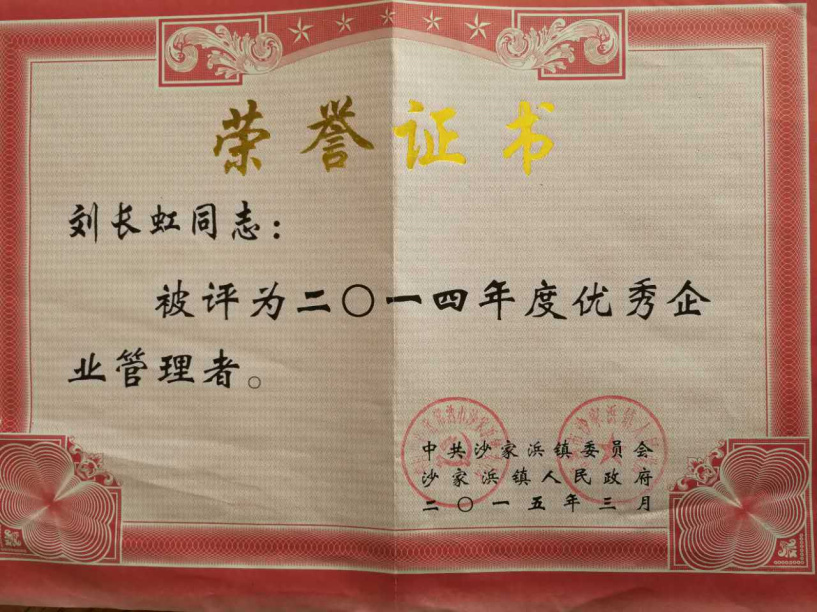 荣誉证书
刘长虹同志：
被评为二〇一四年度优秀企
业管理者。
中共沙家浜镇委员会
沙家浜镇人民政府
二〇一五年三月